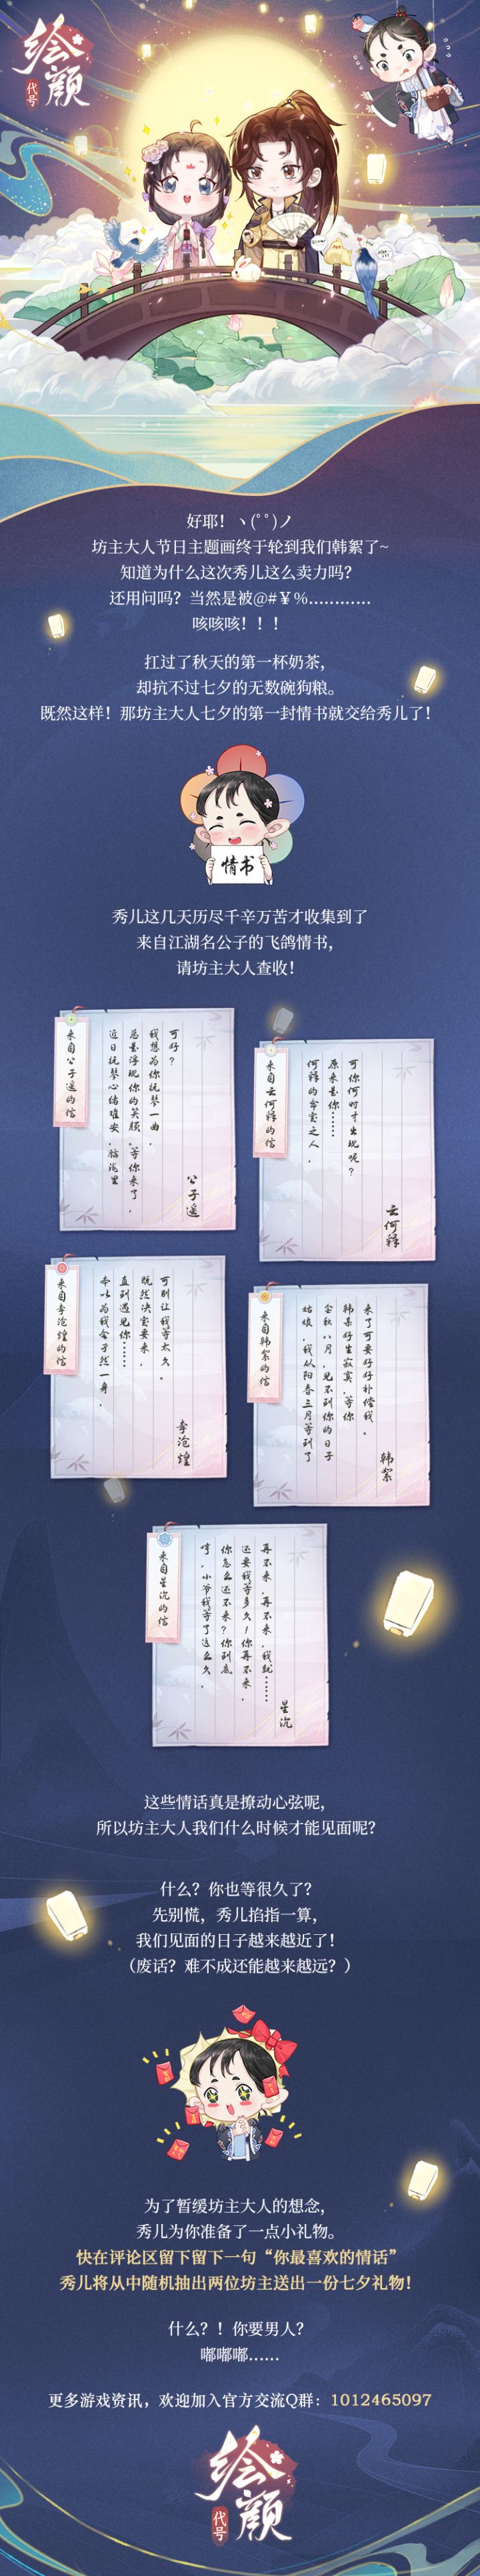 绘颜
代号
好耶！ヽ(ﾟﾟ)ノ
坊主大人节日主题画终于轮到我们韩絮了~
知道为什么这次秀儿这么卖力吗？
还用问吗？当然是被@#￥%…………
咳咳咳！！！
扛过了秋天的第一杯奶茶，
却抗不过七夕的无数碗狗粮。
既然这样！那坊主大人七夕的第一封情书就交给秀儿了！
情书
秀儿这几天历尽千辛万苦才收集到了
来自江湖名公子的飞鸽情书，
请坊主大人查收！
来自公子遥的信
近日抚琴心绪难安，脑海里
总是浮现你的笑颜。等你来了，
我想为你抚琴一曲，
可好？
公子遥
来自云何释的信
何释的命定之人，
原来是你……
可你何时才出现呢？
云何释
来自李沧煌的信
本以为我会孑然一身，
直到遇见你……
既然决定要来，
可别让我等太久。
李沧煌
来自韩絮的信
姑娘，我从阳春三月等到了
金秋八月，见不到你的日子
韩某好生寂寞，等你
来了可要好好补偿我。
韩絮
来自星沉的信
哼，小爷我等了这么久，
你怎么还不来？你到底
还要我等多久！你再不来，
再不来，再不来，我就……
星沉
这些情话真是撩动心弦呢，
所以坊主大人我们什么时候才能见面呢？
什么？你也等很久了？
先别慌，秀儿掐指一算，
我们见面的日子越来越近了！
（废话？难不成还能越来越远？）
为了暂缓坊主大人的想念，
秀儿为你准备了一点小礼物。
快在评论区留下留下一句“你最喜欢的情话”
秀儿将从中随机抽出两位坊主送出一份七夕礼物！
什么？！你要男人？
嘟嘟嘟……
更多游戏资讯，欢迎加入官方交流Q群：1012465097
绘颜
代号